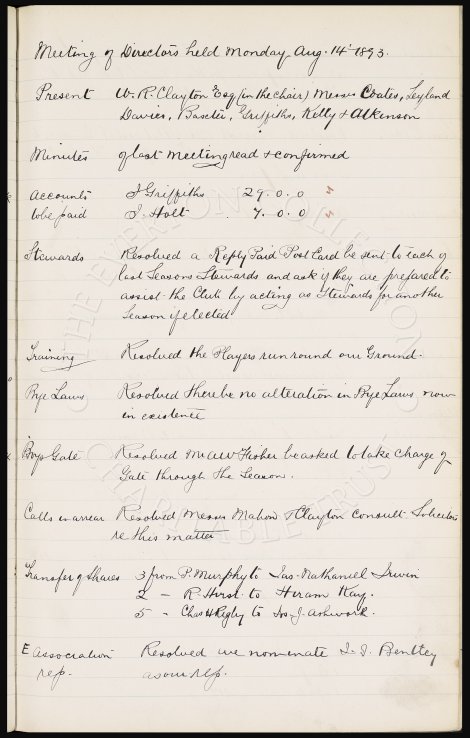 Meeting of Directors held Monday Aug. 14th 1893.
Present W. R. Clayton Esq (in the Chair) Messrs Coates, Leyland
Davies, Baxter, Griffiths, Kelly & Atkinson
Minutes of last meeting read & confirmed
Accounts J Griffiths 29. 0. 0
to be paid J. Holt 7. 0. 0
Stewards Resolved a Reply Paid Post Card be sent to each of
last Seasons Stewards and ask if they are prepared to
assist the Club by acting as Stewards for another
Season if elected
Training Resolved the Players run round our Ground.
Bye Laws Resolved there be no alteration in Bye Laws now
in existence
Boys Gate Resolved Mr Fisher be asked to take charge of
Gate through the Season.
Calls in arrear Resolved Messrs Mahon & Clayton consult Solicitors
re this matter
Transfer of Shares 3 from P. Murphy to Jas. Nathaniel Irwin
2 - R. Hirst to Hiram Kay.
5 - Chas H Rigby to Jos. J. Ashworth.
E Association Resolved we nominate J. J. Bentley
rep. as our rep.
THE EVERTON COLLECTION
CHARITABLE TRUST